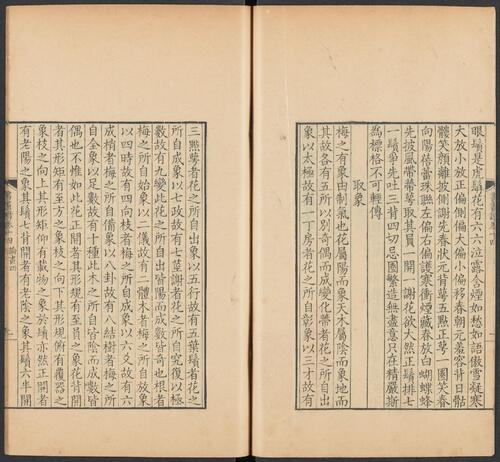 眼鬚是虎鬚花有六六泣露含烟如愁如語傲雪凝寒
大放小放正偏側偏大偏小偏移春朝元羞容背日骷
髏笑顏離披側謝先春狀元背萼五點正萼一團笑春
向陽蓓蕾珠聯左偏右偏護寒衝煙藏春放白蝴蝶蜂
先披風帶蒂萼取其員一開一謝花欲大然正鬚排七
一鬚爭先吐三背四切忌圈繁造無盡意只在精嚴斯
為標格不可輕傳
取象
梅之有象由制氣也花屬陽而象天木屬陰而象地而
其故各有五所以別奇偶而成變化蒂者花之所自出
象以太極故有一丁房者花之所自彰象以三才故有
三點萼者花之所自出象以五行故有五葉鬚者花之
所自成象以七政故有七莖謝者花之所自究復以極
數故有九變此花之所自出皆陽而成數皆奇也根者
梅之所自始象以二儀故有二體木者梅之所自放象
以四時故有四向枝者梅之所自成象以六爻故有六
成梢者梅之所自備象以八卦故有八結樹者梅之所
自全象以足數故有十種此木之所自皆陰而成數皆
偶也不惟如此花正開者其形規有至員之象花背開
者其形矩有至方之象枝之向下其形規俯有覆器之
象枝之向上其形矩仰有載物之象於鬚亦然正開者
有老陽之象其鬚七背開者有老陰之象其鬚六半開